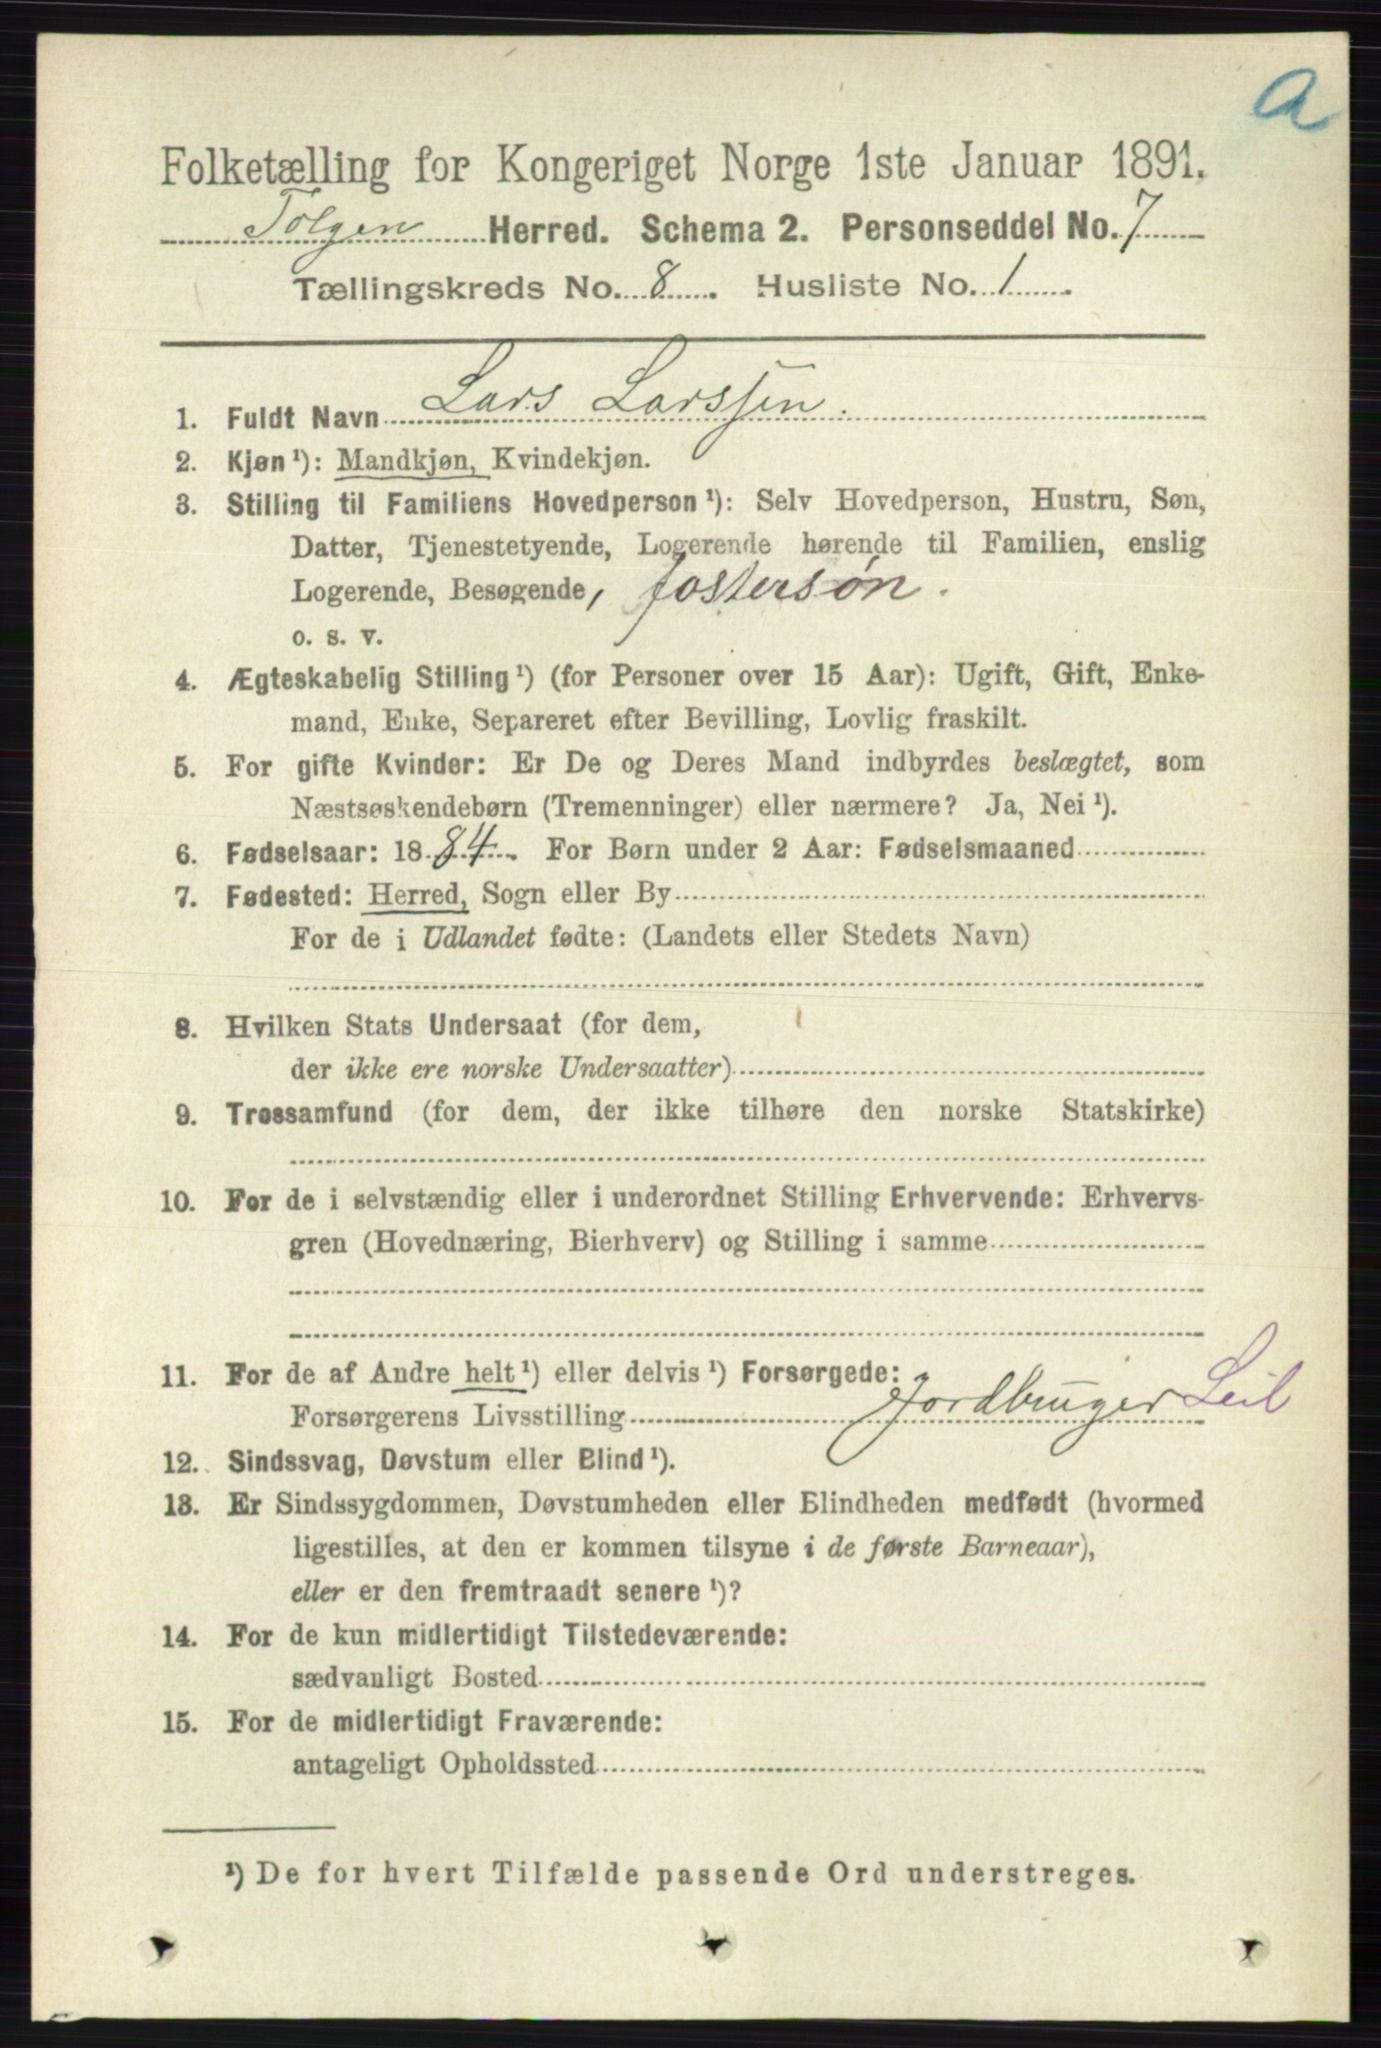 a
Folketælling for Kongeriget Norge 1ste Januar 1891.
Tolgen Herred. Schema 2. Personseddel No. 7
Tællingskreds No. 8. Husliste No. 1.
1. Fuldt Navn Lars Larssen.
2. Kjøn ¹): Mandkjøn, Kvindekjøn.
3. Stilling til Familiens Hovedperson ¹): Selv Hovedperson, Hustru, Søn,
Datter, Tjenestetyende, Logerende hørende til Familien, enslig
Logerende, Besøgende, fostersøn.
o. s. v.
4. Ægteskabelig Stilling ¹) (for Personer over 15 Aar): Ugift, Gift, Enke-
mand, Enke, Separeret efter Bevilling, Lovlig fraskilt.
5. For gifte Kvinder: Er De og Deres Mand indbyrdes beslægtet, som
Næstsøskendebørn (Tremenninger) eller nærmere? Ja, Nei ¹).
6. Fødselsaar: 1884. For Børn under 2 Aar: Fødselsmaaned
7. Fødested: Herred, Sogn eller By
For de i Udlandet fødte: (Landets eller Stedets Navn)
8. Hvilken Stats Undersaat (for dem,
der ikke ere norske Undersaatter)
9. Trossamfund (for dem, der ikke tilhøre den norske Statskirke)
10. For de i selvstændig eller i underordnet Stilling Erhvervende: Erhvervs-
gren (Hovednæring, Bierhverv) og Stilling i samme
11. For de af Andre helt ¹) eller delvis ¹) Forsørgede:
Forsørgerens Livsstilling Jordbruger Leil
12. Sindssvag, Døvstum eller Blind ¹).
13. Er Sindssygdommen, Døvstumheden eller Blindheden medfødt (hvormed
ligestilles, at den er kommen tilsyne i de første Barneaar),
eller er den fremtraadt senere ¹)?
14. For de kun midlertidigt Tilstedeværende:
sædvanligt Bosted
15. For de midlertidigt Fraværende:
antageligt Opholdssted
¹) De for hvert Tilfælde passende Ord understreges.